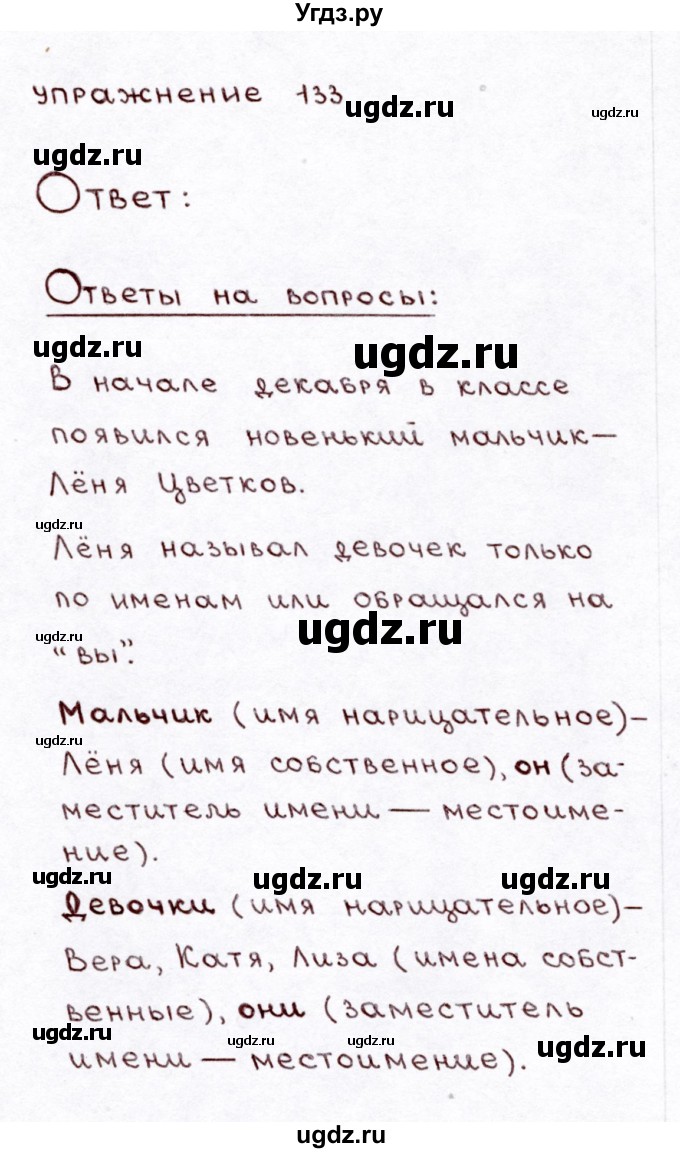 Угдз.ру
упражнение 133
ugdz.ru
ugdz.ru
ugdz.ru
Ответ:
Ответы на вопросы:
ugdz.ru
ugdz.ru
В начале декабря в классе
появился новенький мальчик—
Лёня Цветков.
ugdz.ru
Лёня называл девочек только
по именам или обращался на
ugdz.ru
ugdz.ru
"вы".
Мальчик (имя нарицательное)–
ugdz.ru
Лёня (имя собственное), он (за-
меститель имени — местоиме-
ние).
ugdz.ru
ugdz.ru
ugdz.ru
Девочки (имя нарицательное)–
Вера, Катя, Лиза (имена собст-
венные), они (заместитель
ugdz.ru
ugdz.ru
ugdz.ru
ugdz.ru
имени — местоимение).
ugdz.ru